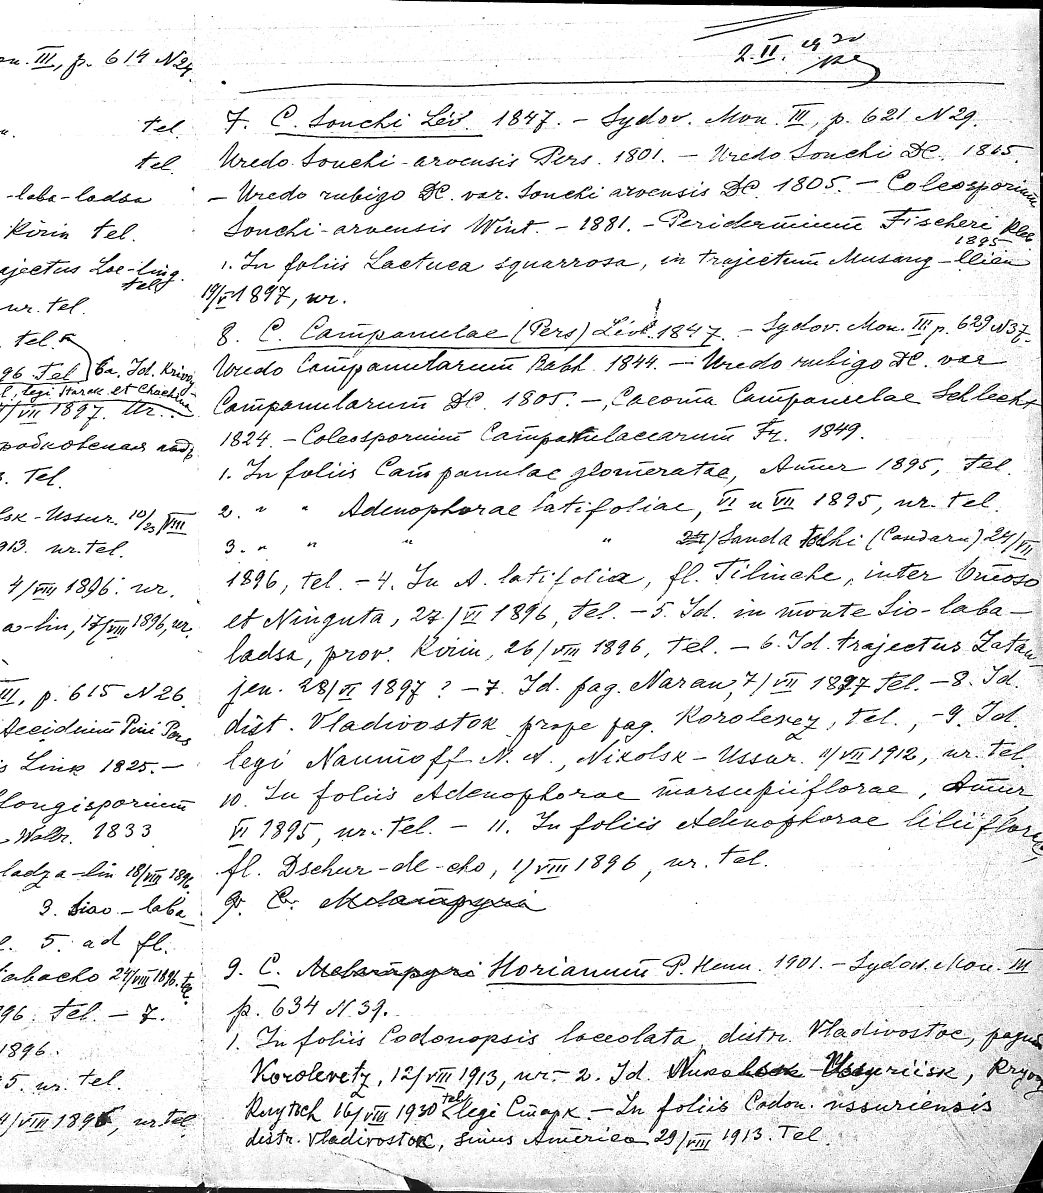 n. III, p. 614 N24.
tel.
tel.
-laba-ladsa
Kirin tel.
ajectus Loe-ling.
tel.
ur. tel.
tel.
96 tel 6a. Id. Krivoy
l, legi
/VII 1897. Ur.
3. tel.
lsk-Ussur. 10/23/VIII
913. ur. tel.
4/VIII 1896. ur.
a-lin, 17/VIII 1896, ur.
III, p. 615 N26.
Aecidium Pini Pers
s Link 1825. —
longisporium
Wallr. 1833
ladza-lin 18/VIII 1896.
3. Siao-laba-
l. 5. ad fl.
abacho 24/VIII 1896. tel.
96. tel. — 7.
1896.
5. ur. tel.
4/VIII 1896, ur. tel
2. II.
7. C. Sonchi Lév. 1847. — Sydov. Mon. III, p. 621 N29.
Uredo Sonchi-arvensis Pers. 1801. — Uredo Sonchi DC. 1805.
— Uredo rubigo DC. var. Sonchi arvensis DC. 1805. — Coleosporium
Sonchi-arvensis Wint. — 1881. — Peridermium Fischeri Kleb
1895
1. In foliis Lactuca squarrosa, in trajectum Musang-
19/V 1897, ur.
8. C. Campanulae (Pers) Lév. 1847. — Sydov. Mon. III p. 629 N37.
Uredo Campanularum Rabh. 1844. — Uredo rubigo DC. var
Campanularum DC. 1805. —, Caeoma Campanulae Schlecht
1824. — Coleosporium Campanulacearum Fr. 1849.
1. In foliis Campanulae glomeratae, Amur 1895, tel.
2. " " Adenophorae latifoliae, VI и VII 1895, ur. tel.
3. " " " " Sanda tchi (Candaru) 24/VII
1896, tel. — 4. In A. latifolia, fl. Tilinche, inter Omoso
et Ninguta, 27/VI 1896, tel. — 5. Id. in monte Sio-laba-
ladsa, prov. Kirin, 26/VIII 1896, tel. — 6. Id. trajectus Zatan-
jen. 28/VI 1897 ? — 7. Id. pag. Naran, 7/VII 1897 tel. — 8. Id.
dist. Vladivostok prope pag. Korolevez, tel., — 9. Id.
legi Naumoff N. A., Nikolsk-Ussur. 11/VII 1912, ur. tel.
10. In foliis Adenophorae marsupiiflorae, Amur
VI 1895, ur. tel. — 11. In foliis Adenophorae liliiflorae,
fl. Dschur-de-cho, 1/VIII 1896, ur. tel.
9. C. Melampyri
9. C. Melampyri Horianum P. Henn. 1901. — Sydow. Mon. III
p. 634 N39.
1. In foliis Codonopsis laceolata, distr. Vladivostoc, pagus
Korolevetz, 12/VIII 1913, ur. — 2. Id. Nikolsk Ussuriisk, Kryvoy
Kluytsch 16/VIII 1930 tel, legi — In foliis Codon. ussuriensis
distr. Vladivostok, sinus America 29/VIII 1913. tel.